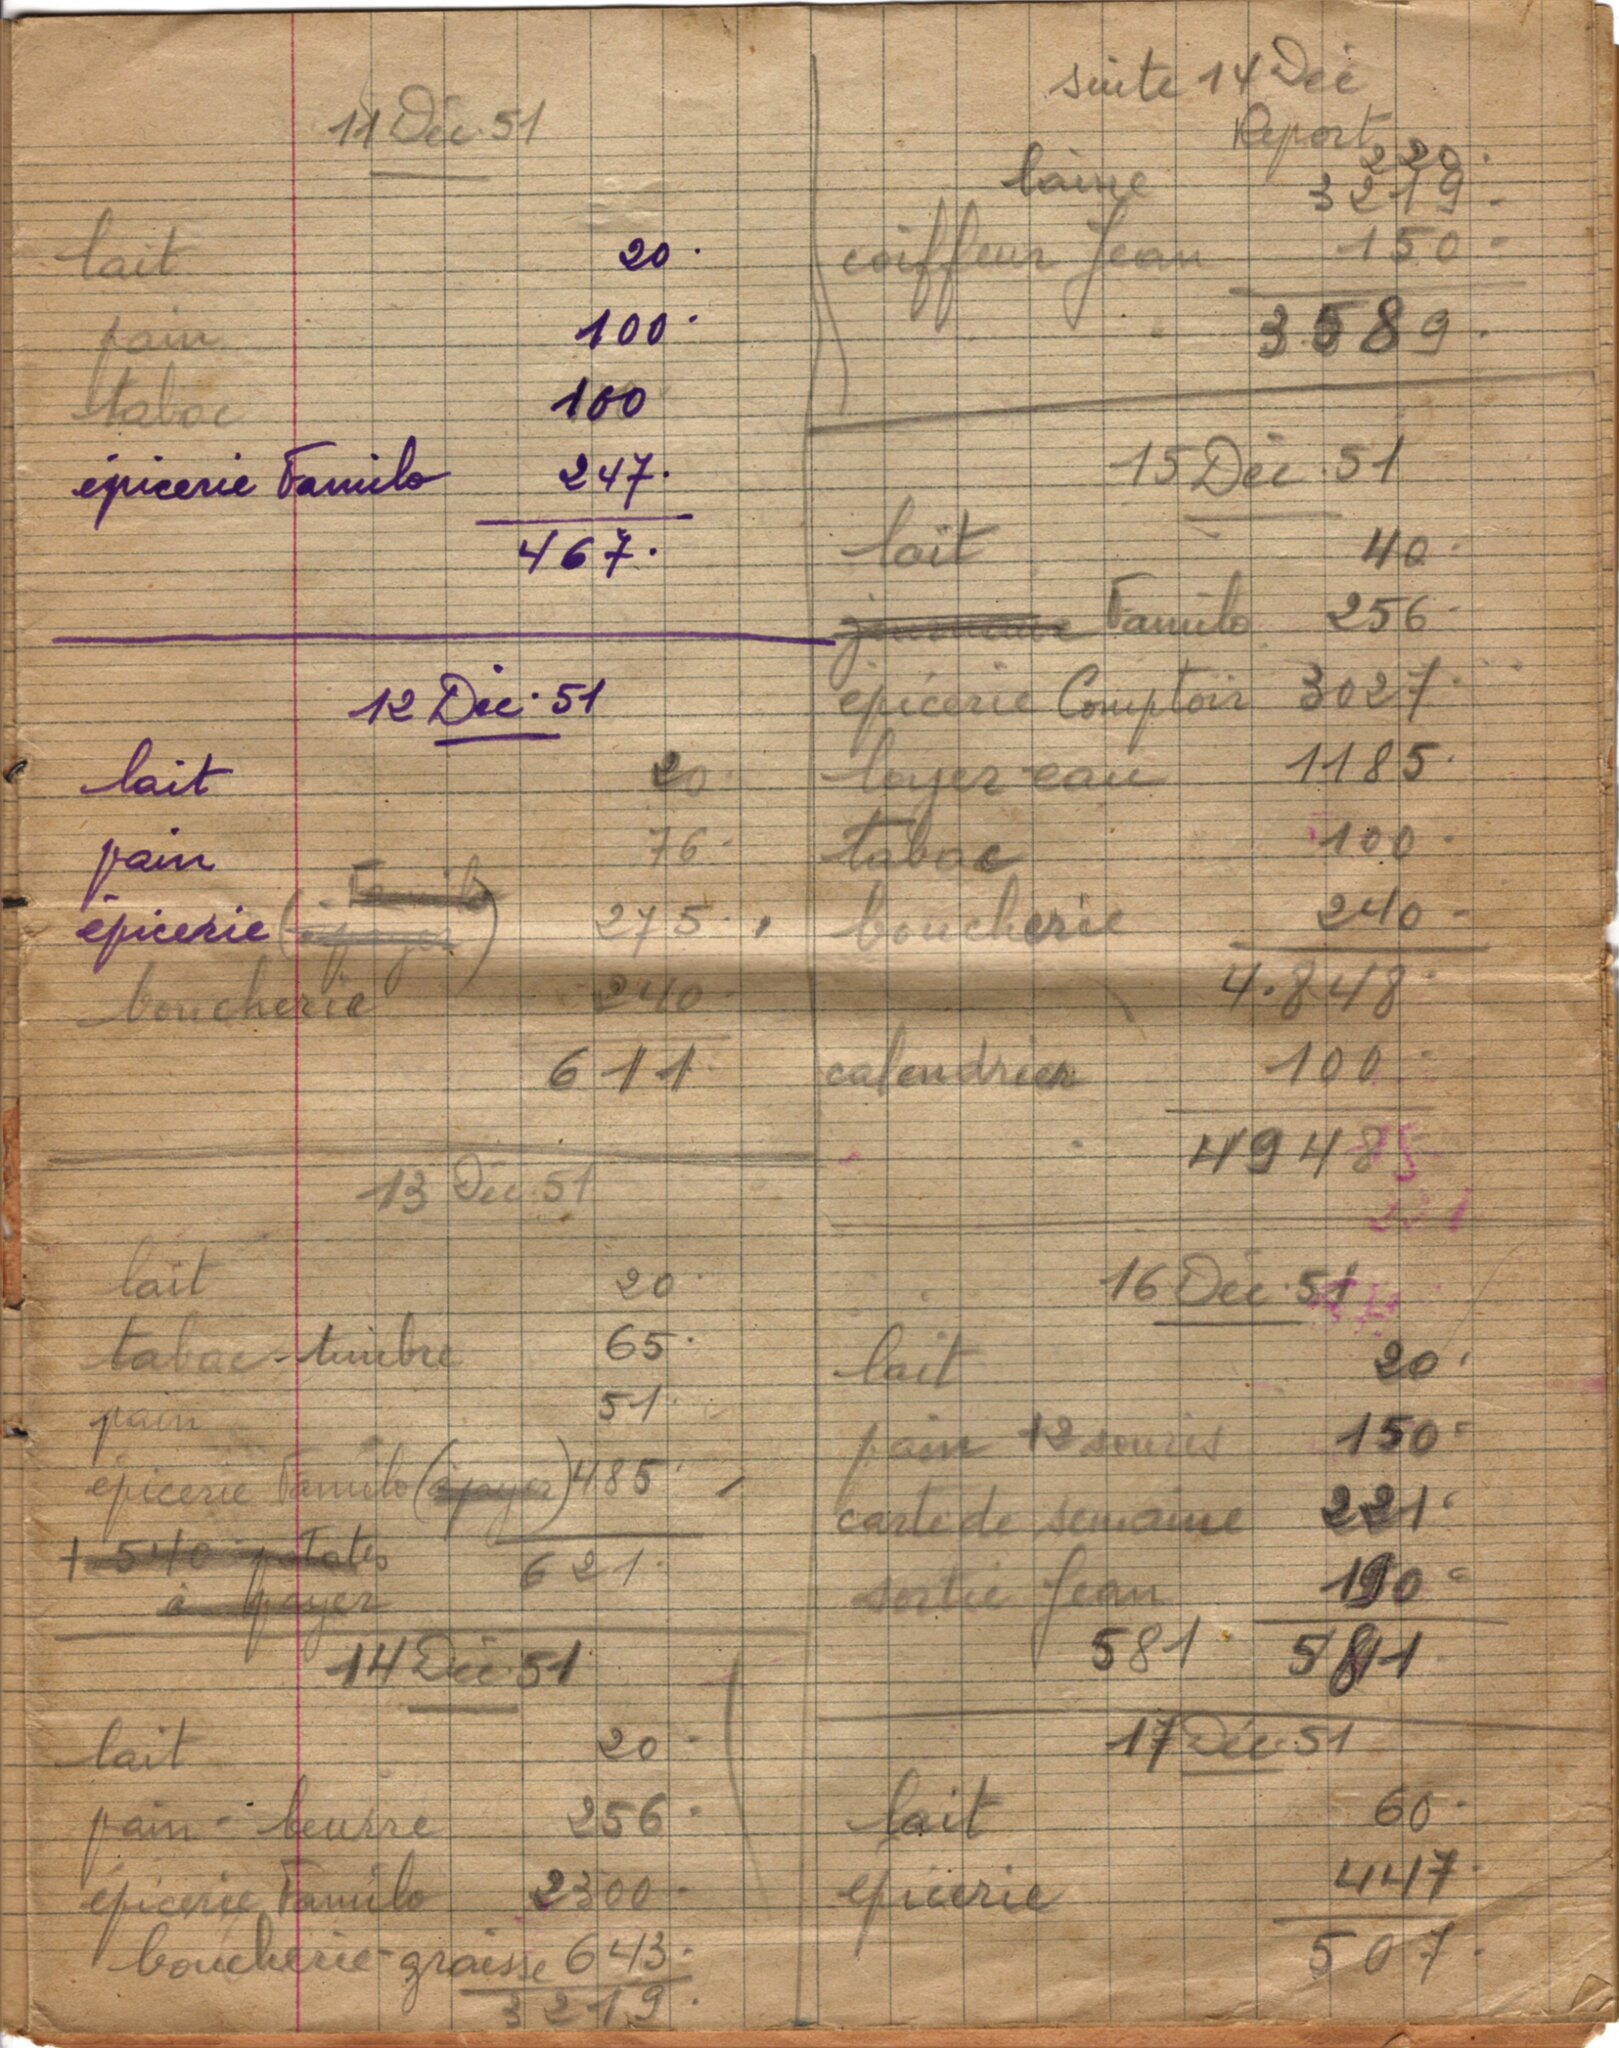 11 Déc. 51
lait 20.
pain 100.
tabac 100
épicerie Familo 247.
467.
12 Déc. 51
lait 20.
pain 76.
Familo
épicerie (à payer) 275.
boucherie 240.
611.
13 Déc. 51
lait 20.
tabac-timbre 65.
pain 51.
épicerie Familo (à payer) 485.
+ 540 patates 621.
à payer
14 Déc. 51
lait 20.
pain - beurre 256.
épicerie Familo 2300.
boucherie-graisse 643.
3219.
suite 14 Déc
Report
220.
laine 3219.
coiffeur Jean 150.
3589.
15 Déc. 51
lait 40.
Familo 256.
épicerie Comptoir 3027.
loyer-eau 1185.
tabac 100.
boucherie 240.
4.848.
calendrier 100.
4948
16 Déc. 51
lait 20.
pain 12 souris 150.
carte de semaine 221.
sortie Jean 190.
581. 581.
17 Déc. 51
lait 60.
épicerie 447.
507.